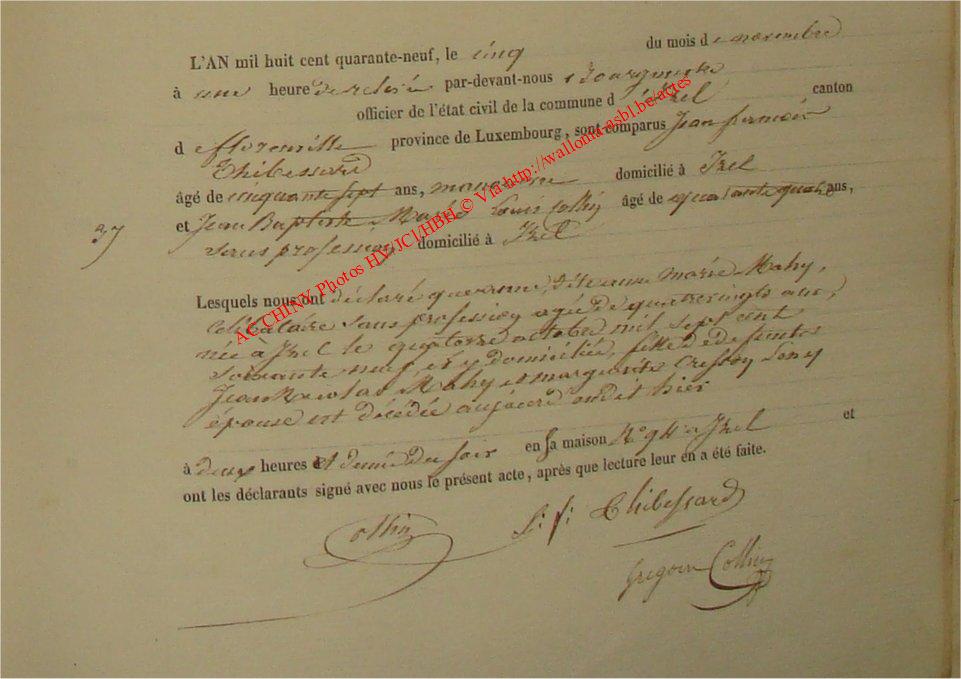 L'AN mil huit cent quarante-neuf, le cinq du mois de novembre
à une heure de relevée par-devant-nous Bourgmestre
officier de l'état civil de la commune d'Izel canton
de florenville province de Luxembourg, sont comparus Jean
Thibessard
âgé de cinquante sept ans, domicilié à Izel
et Jean Baptiste Louis Collin âgé de quarante quatre ans,
37
sans profession domicilié à Izel
Lesquels nous ont déclaré que anne marie Mahy,
célibataire sans profession agée de quatrevingts ans,
née à Izel le quatorze octobre mil sept cent
soixante neuf, et y domiciliée, fille de defunts
Jean Nicolas Mahy et marguerite
épouse est décédée hier
à deux heures et demie du soir en sa maison N° à Izel et
ont les déclarants signé avec nous le présent acte, après que lecture leur en a été faite.
Collin Thibessard
Gregoire Collin
AC CHINY Photos HV/JCl/HBH © Via http://wallonia-asbl.be/actes